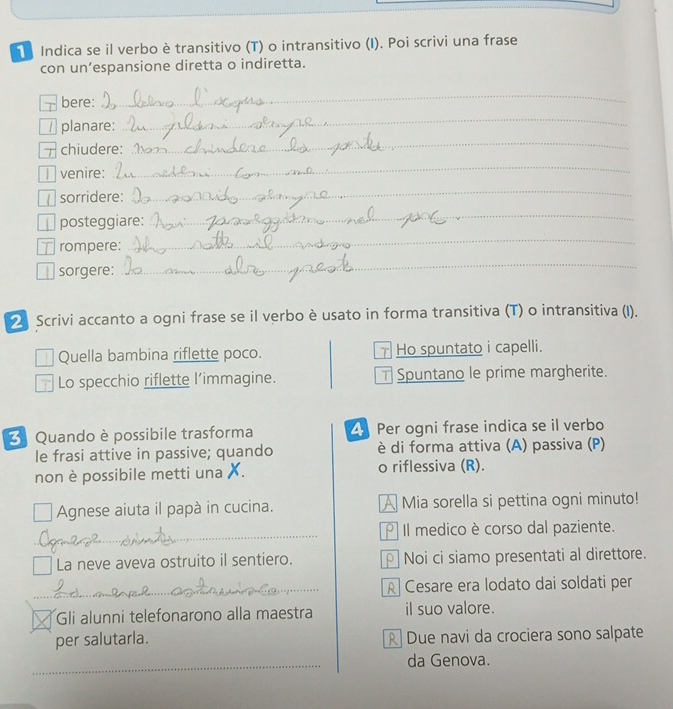 1 Indica se il verbo è transitivo (T) o intransitivo (I). Poi scrivi una frase
con un'espansione diretta o indiretta.
T bere: Io bevo l'acqua
I planare: Tu plani sempre
T chiudere: Non chiudere la porta
I venire: Tu vieni con me
I sorridere: Io sorrido sempre
I posteggiare: nel
T rompere: Ho rotto il
I sorgere: Io mi alzo presto
2 Scrivi accanto a ogni frase se il verbo è usato in forma transitiva (T) o intransitiva (I).
I Quella bambina riflette poco.
T Lo specchio riflette l'immagine.
T Ho spuntato i capelli.
T Spuntano le prime margherite.
3 Quando è possibile trasforma
le frasi attive in passive; quando
non è possibile metti una X.
Agnese aiuta il papà in cucina.
Agnese
La neve aveva ostruito il sentiero.
La neve
X Gli alunni telefonarono alla maestra
per salutarla.
4 Per ogni frase indica se il verbo
è di forma attiva (A) passiva (P)
o riflessiva (R).
A Mia sorella si pettina ogni minuto!
P Il medico è corso dal paziente.
P Noi ci siamo presentati al direttore.
R Cesare era lodato dai soldati per
il suo valore.
R Due navi da crociera sono salpate
da Genova.